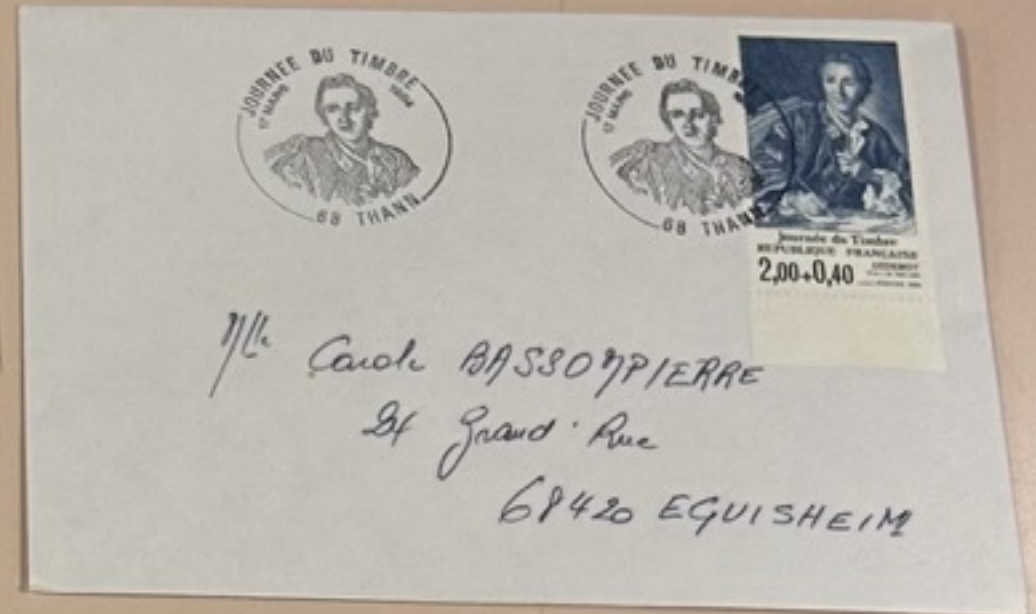 JOURNEE DU TIMBRE
17 MARS 1984
68 THANN
JOURNEE DU TIMBRE
17 MARS
68 THANN
Journée du Timbre
REPUBLIQUE FRANÇAISE
2,00+0,40
DIDEROT
Mlle Carole BASSOMPIERRE
24 Grand'Rue
68420 EGUISHEIM